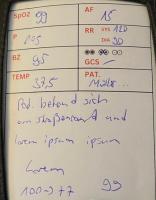 SpO2 99 AF 15
P 105 RR SYS 120
DIA 80
BZ 95 GCS
TEMP 37,5 PAT. Müller
Pat. befand sich
am straßenrand und
lorem ipsum ipsum
Lorem
99